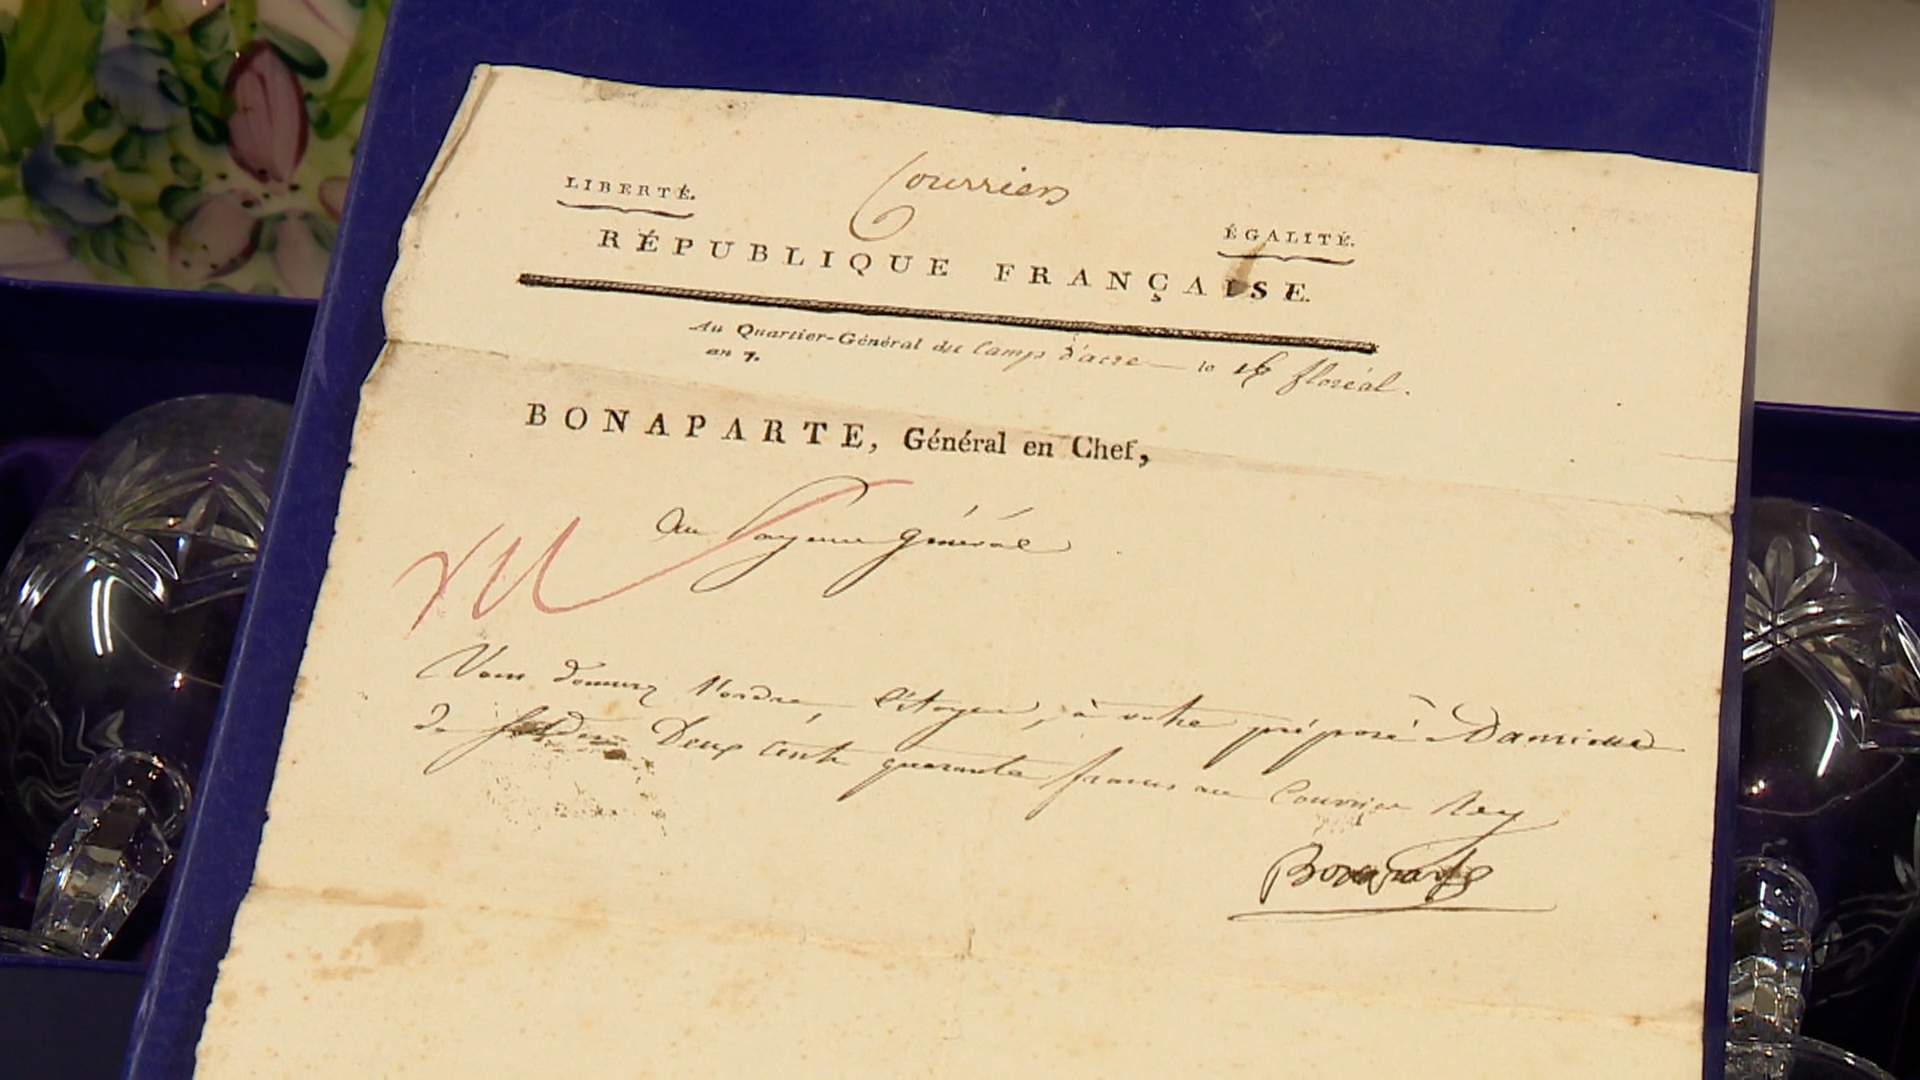 Courriers
LIBERTÉ.
ÉGALITÉ.
RÉPUBLIQUE FRANÇAISE.
Au Quartier-Général du Camp d'acre le floréal.
an 7.
BONAPARTE, Général en Chef,
Au Payeur général
Vous donnerez l'ordre, Citoyen, à votre préposé à Damiette
de solder Deux cents quarante francs au Courrier Rey
Bonaparte